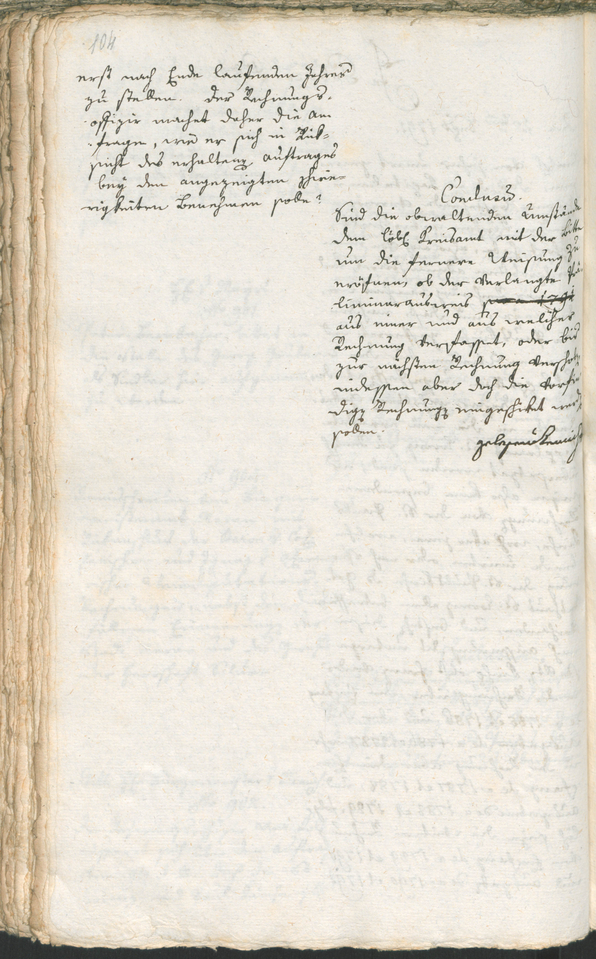 104
erst nach Ende laufenden Jahres
zu stellen. Der Rechnungs-
offizir machet daher die An-
frage, wie er sich in Rük-
sicht des erhaltenen Auftrages
bey den angezeigten Schwie-
rigkeiten benehmen solle?
Conclusum.
Sind die obwaltenden Umstände
dem Löbl Kreisamt mit der Bitte
um die fernere Weisung zu
eröfnen, ob der verlangte Prä-
liminarausweis
aus einer und aus welcher
Rechnung verfasset, oder bis
zur nächsten Rechnung verschoben
indessen aber doch die
Rechnung eingeschikt werden
sollen.